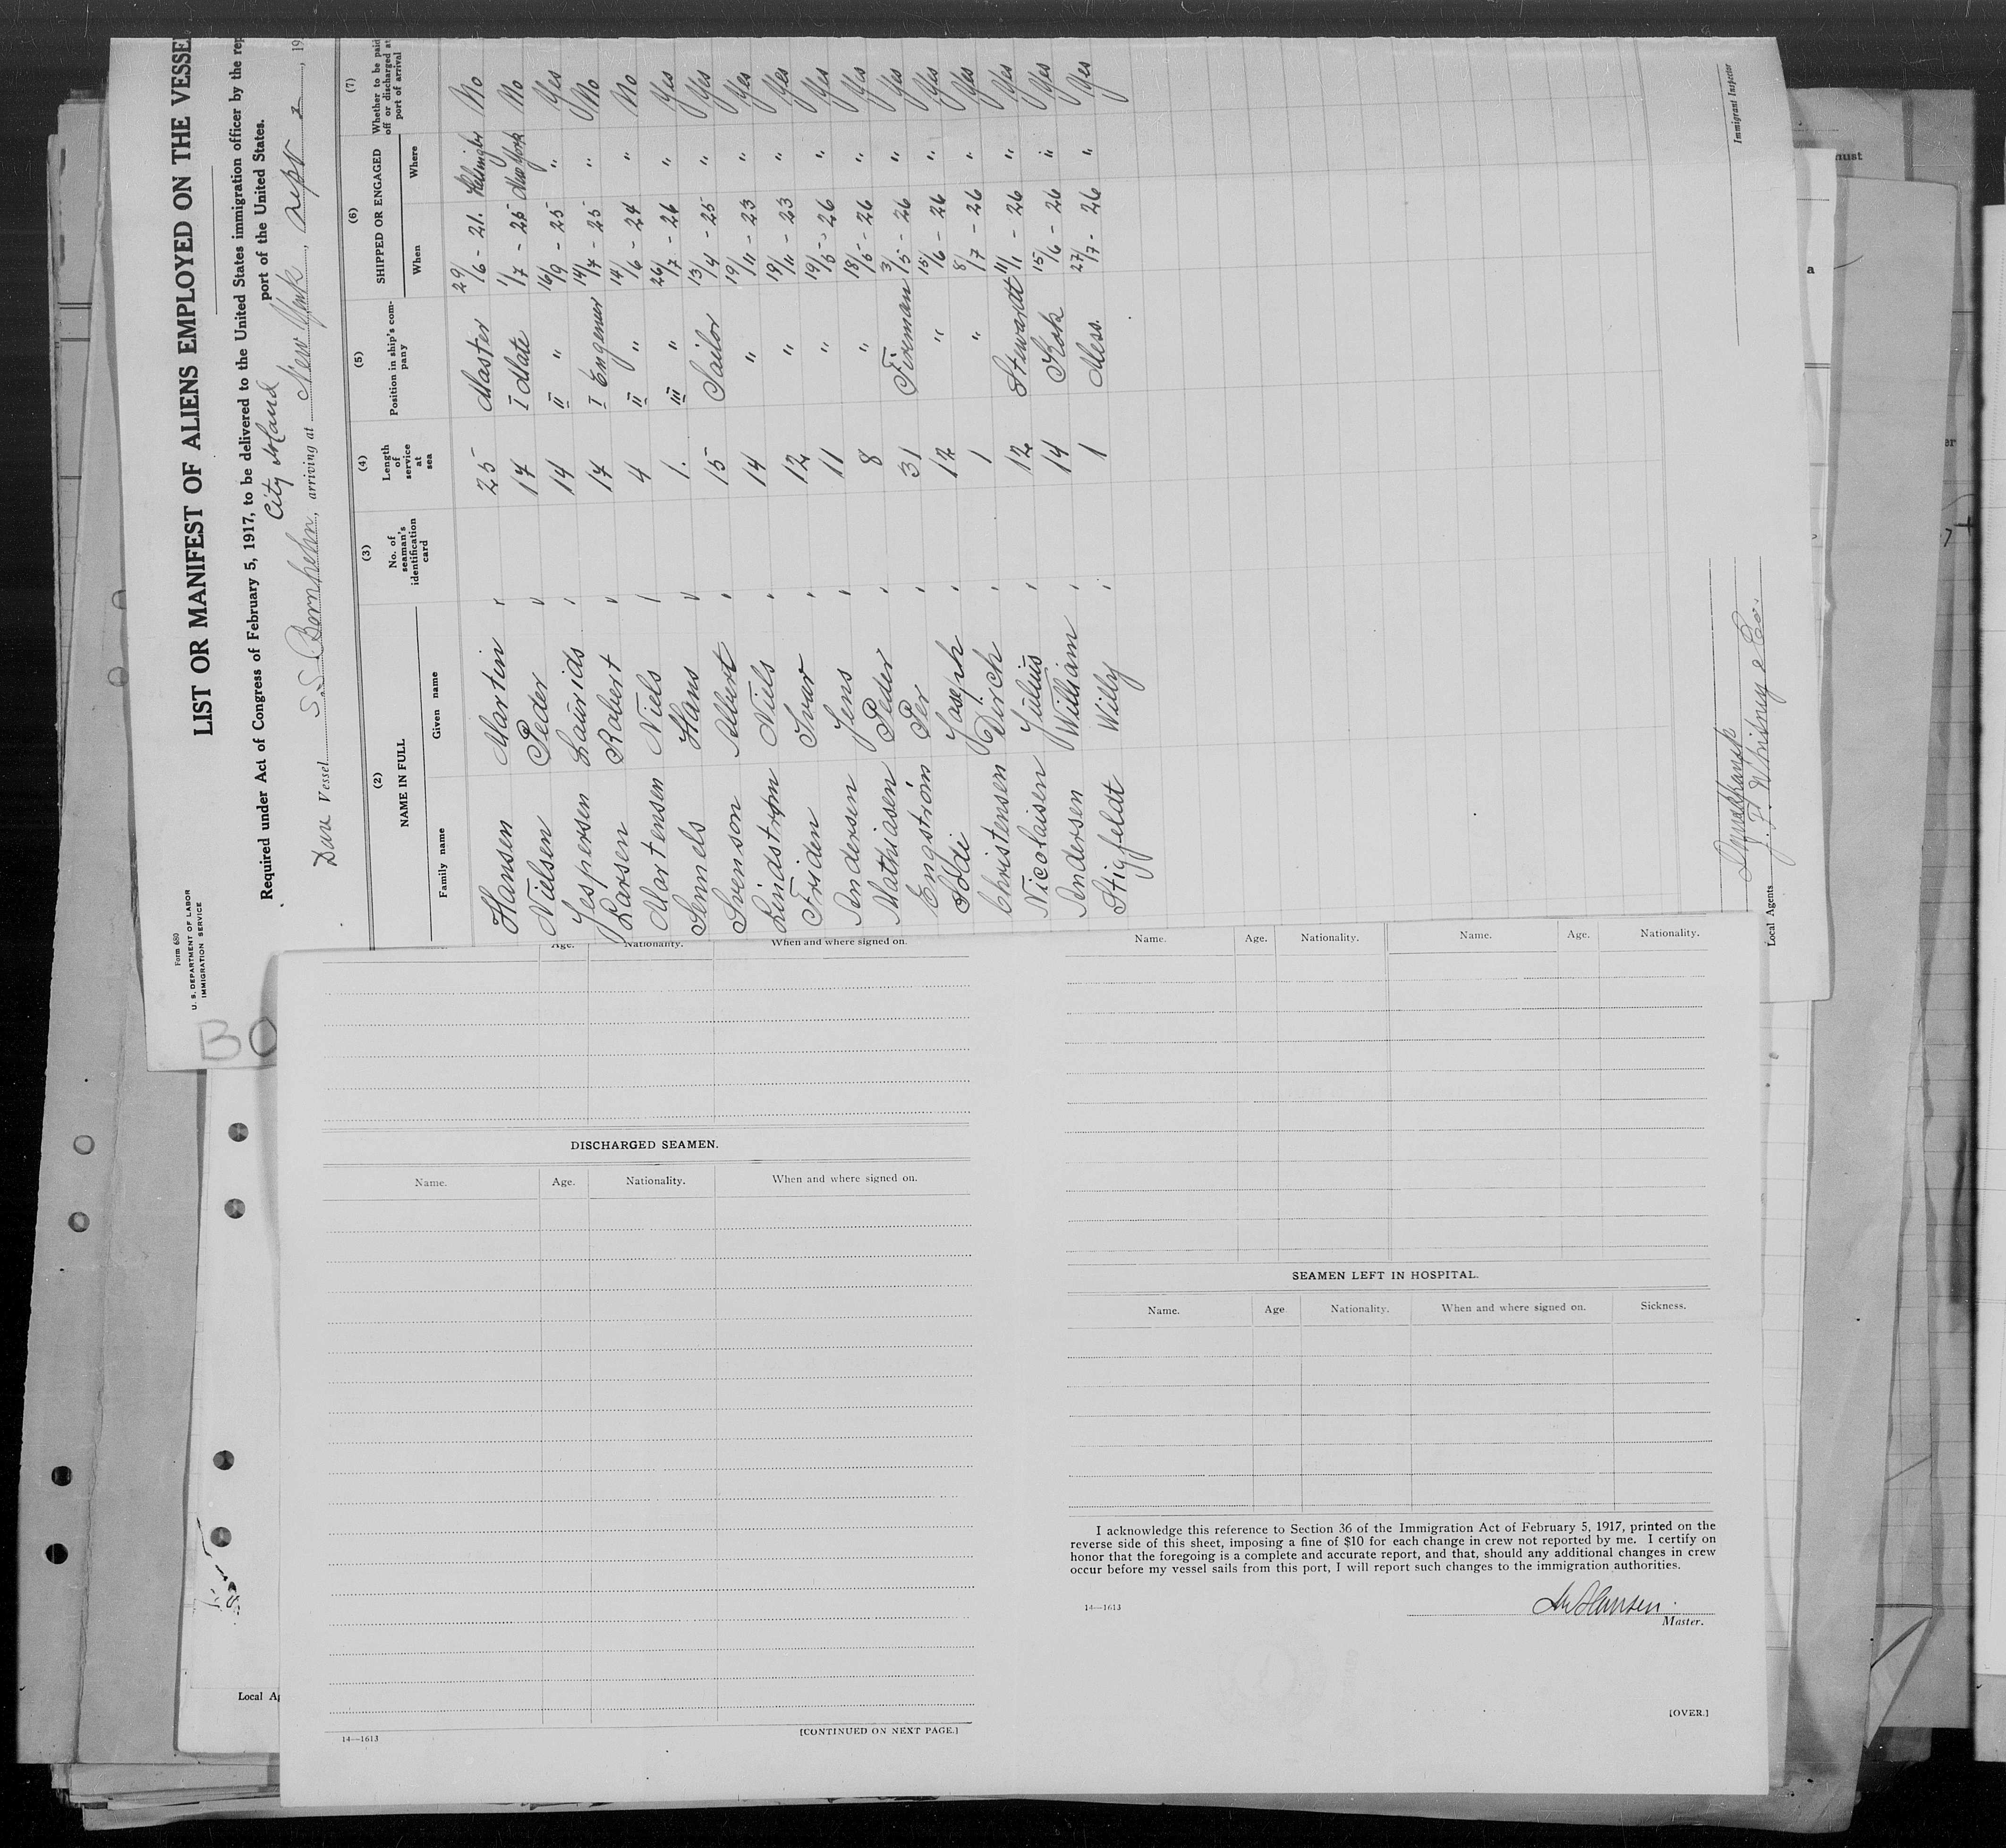 Form 680
U. S. DEPARTMENT OF LABOR
IMMIGRATION SERVICE
LIST OR MANIFEST OF ALIENS EMPLOYED ON THE VESSE
Required under Act of Congress of February 5, 1917, to be delivered to the United States immigration officer by the rep
port of the United States.
City Island
Vessel S.S. Bornholm, arriving at New York, Sept 2, 19
(2) (3) (4) (5) (6) (7)
NAME IN FULL No. of seaman's identification card Length of service at sea Position in ship's company SHIPPED OR ENGAGED Whether to be paid off or discharged at port of arrival
Family name Given name When Where
Hansen Martin 25 Master 29/6 - 21. No
Nielsen Peder 17 I Mate 1/7 - 25 New York No
Jespersen Laurids 14 II " 16/9 - 25 " Yes
Larsen Robert 17 I Engeneer 14/7 - 25 " No
Martensen Niels 4 II " 14/6 - 24 " No
Sennels Hans 1. III " 26/7 - 26 " Yes
Svenson Albert 15 Sailor 13/4 - 25 " Yes
Lindstrøm Niels 14 " 19/11 - 23 " Yes
Friden Ivar 12 " 19/11 - 23 " Yes
Andersen Jens 11 " 19/5 - 26 " Yes
Mathiasen Peder 8 " 18/5 - 26 " Yes
Engstrøm Per 31 Fireman 3/5 - 26 " Yes
Joseph 12 " 15/6 - 26 " Yes
Christensen Dirch 1 " 8/7 - 26 " Yes
Nicolaisen Julius 12 Stewardt 11/1 - 26 " Yes
Andersen William 14 Kok 15/6 - 26 " Yes
Stigfeldt Willy 1 Mess. 27/7 - 26 " Yes
J. F. Whitney & Co.
Local Agents
Immigrant Inspector
BO
Age. Nationality. When and where signed on.
DISCHARGED SEAMEN.
Name. Age. Nationality. When and where signed on.
14—1613
[CONTINUED ON NEXT PAGE.]
Name. Age. Nationality. Name. Age. Nationality.
SEAMEN LEFT IN HOSPITAL.
Name. Age Nationality. When and where signed on. Sickness.
I acknowledge this reference to Section 36 of the Immigration Act of February 5, 1917, printed on the
reverse side of this sheet, imposing a fine of $10 for each change in crew not reported by me. I certify on
honor that the foregoing is a complete and accurate report, and that, should any additional changes in crew
occur before my vessel sails from this port, I will report such changes to the immigration authorities.
14—1613
Hansen.
Master.
[OVER.]
Local Ag